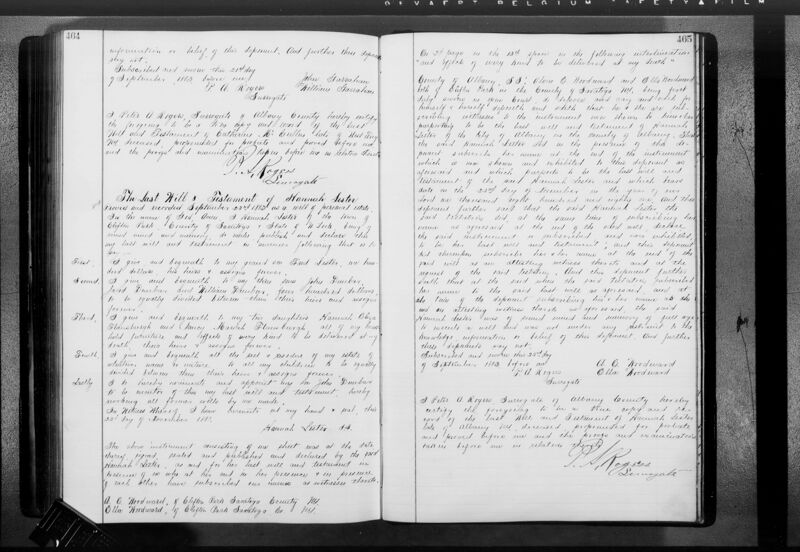 GEVAERT BELGIUM SAFETY FILM
464
information or belief of this deponent. And further this deponent
say not.
Subscribed and sworn this 21st day
of September 1883 before me
John Farnham
P. A. Rogers
William Farnham
Surrogate
I Peter A. Rogers Surrogate of Albany County hereby certify
the foregoing to be a true copy and record of the Last
Will and Testament of Catharine Mc late of West Troy
NY deceased, propounded for probate and proved before me
and the proofs and examinations taken before me in relation thereto
P. A. Rogers
Surrogate
The Last Will & Testament of Hannah Lester
Proved and recorded September 22nd 1883 as a will of personal estate
In the name of God, Amen, I Hannah Lester of the town of
Clifton Park County of Saratoga & State of N York being of
sound mind and memory, do make publish and declare this
my last will and testament in manner following that is to
say
First. I give and bequeath to my grand son Lester, one hun
dred dollars, his heirs & assigns forever.
Second. I give and bequeath to my three sons John Dunbar,
Dunbar and William Dunbar, four hundred dollars
to be equally divided between them their heirs and assigns
forever.
Third, I give and bequeath to my two daughters Hannah Eliza
and Nancy Mariah all of my house
hold furniture and effects of every kind to be delivered at my
death, their heirs & assigns forever.
Fourth I give and bequeath all the rest & residue of my estate of
whatever name or nature to all my children to be equally
divided between them their heirs & assigns forever.
Lastly I do hereby nominate and appoint my son John Dunbar
to be executor of this my last will and testament, hereby
revoking all former wills by me made.
In Witness Whereof I have hereunto set my hand & seal, this
23d day of November 1881.
Hannah Lester L.S.
The above instrument consisting of one sheet was at the date
thereof signed, sealed and published and declared by the said
Hannah Lester, as and for her last will and testament in
presence of us who at her and in her presence & in presence
of each other have subscribed our names as witnesses thereto.
A. C. Woodward, of Clifton Park Saratoga County NY.
Ella Woodward, of Clifton Park Saratoga Co NY.
465
On 2d page in the 12th space in the following interlineation
"and effects of every kind to be delivered at my death"
County of Albany SS: Alvin C. Woodward and Ella Woodward
both of Clifton Park in the County of Saratoga NY. being first
duly sworn in open Court & deposes and says and each for
himself & herself deposeth and saith that he & she are sub
scribing witnesses to the instrument now shown to him/her
purporting to be the last will and testament of Hannah
Lester of the City of Albany in the county of Albany. That
the said Hannah Lester did in the presence of this de
ponent subscribe her name at the end of the instrument
which is now shown and exhibited to this deponent as
aforesaid and which purports to be the last will and
testament of the said Hannah Lester and which bears
date in the 23d day of November in the year of our
Lord one thousand eight hundred and eighty one. And this
deponent further says that the said Hannah Lester the
said testatrix did at the same time of subscribing her
name as aforesaid at the end of the said will, declare
the said instrument so subscribed and now exhibited,
to be her last will and testament; and this deponent
did thereupon subscribe his & her name at the end of the
said will as an attesting witness thereto and at the
request of the said testatrix. And this deponent further
saith that at the said when the said testatrix subscribed
her name to the said last will as aforesaid, and at
the time of the deponent subscribing his & her name at the
end as attesting witness thereto as aforesaid, the said
Hannah Lester was of sound mind and memory of full age
to execute a will and was not under any restraint to the
knowledge information or belief of this deponent. And further
these deponents say not.
Subscribed and sworn this 22d day
of September 1883 before me
A. C. Woodward
P. A. Rogers
Ella Woodward
Surrogate
I Peter A. Rogers Surrogate of Albany County hereby
certify the foregoing to be a true copy and re
cord of the Last Will and Testament of Hannah Lester
late of Albany NY. deceased, propounded for probate
and proved before me and the proofs and examinations
taken before me in relation thereto.
P. A. Rogers
Surrogate